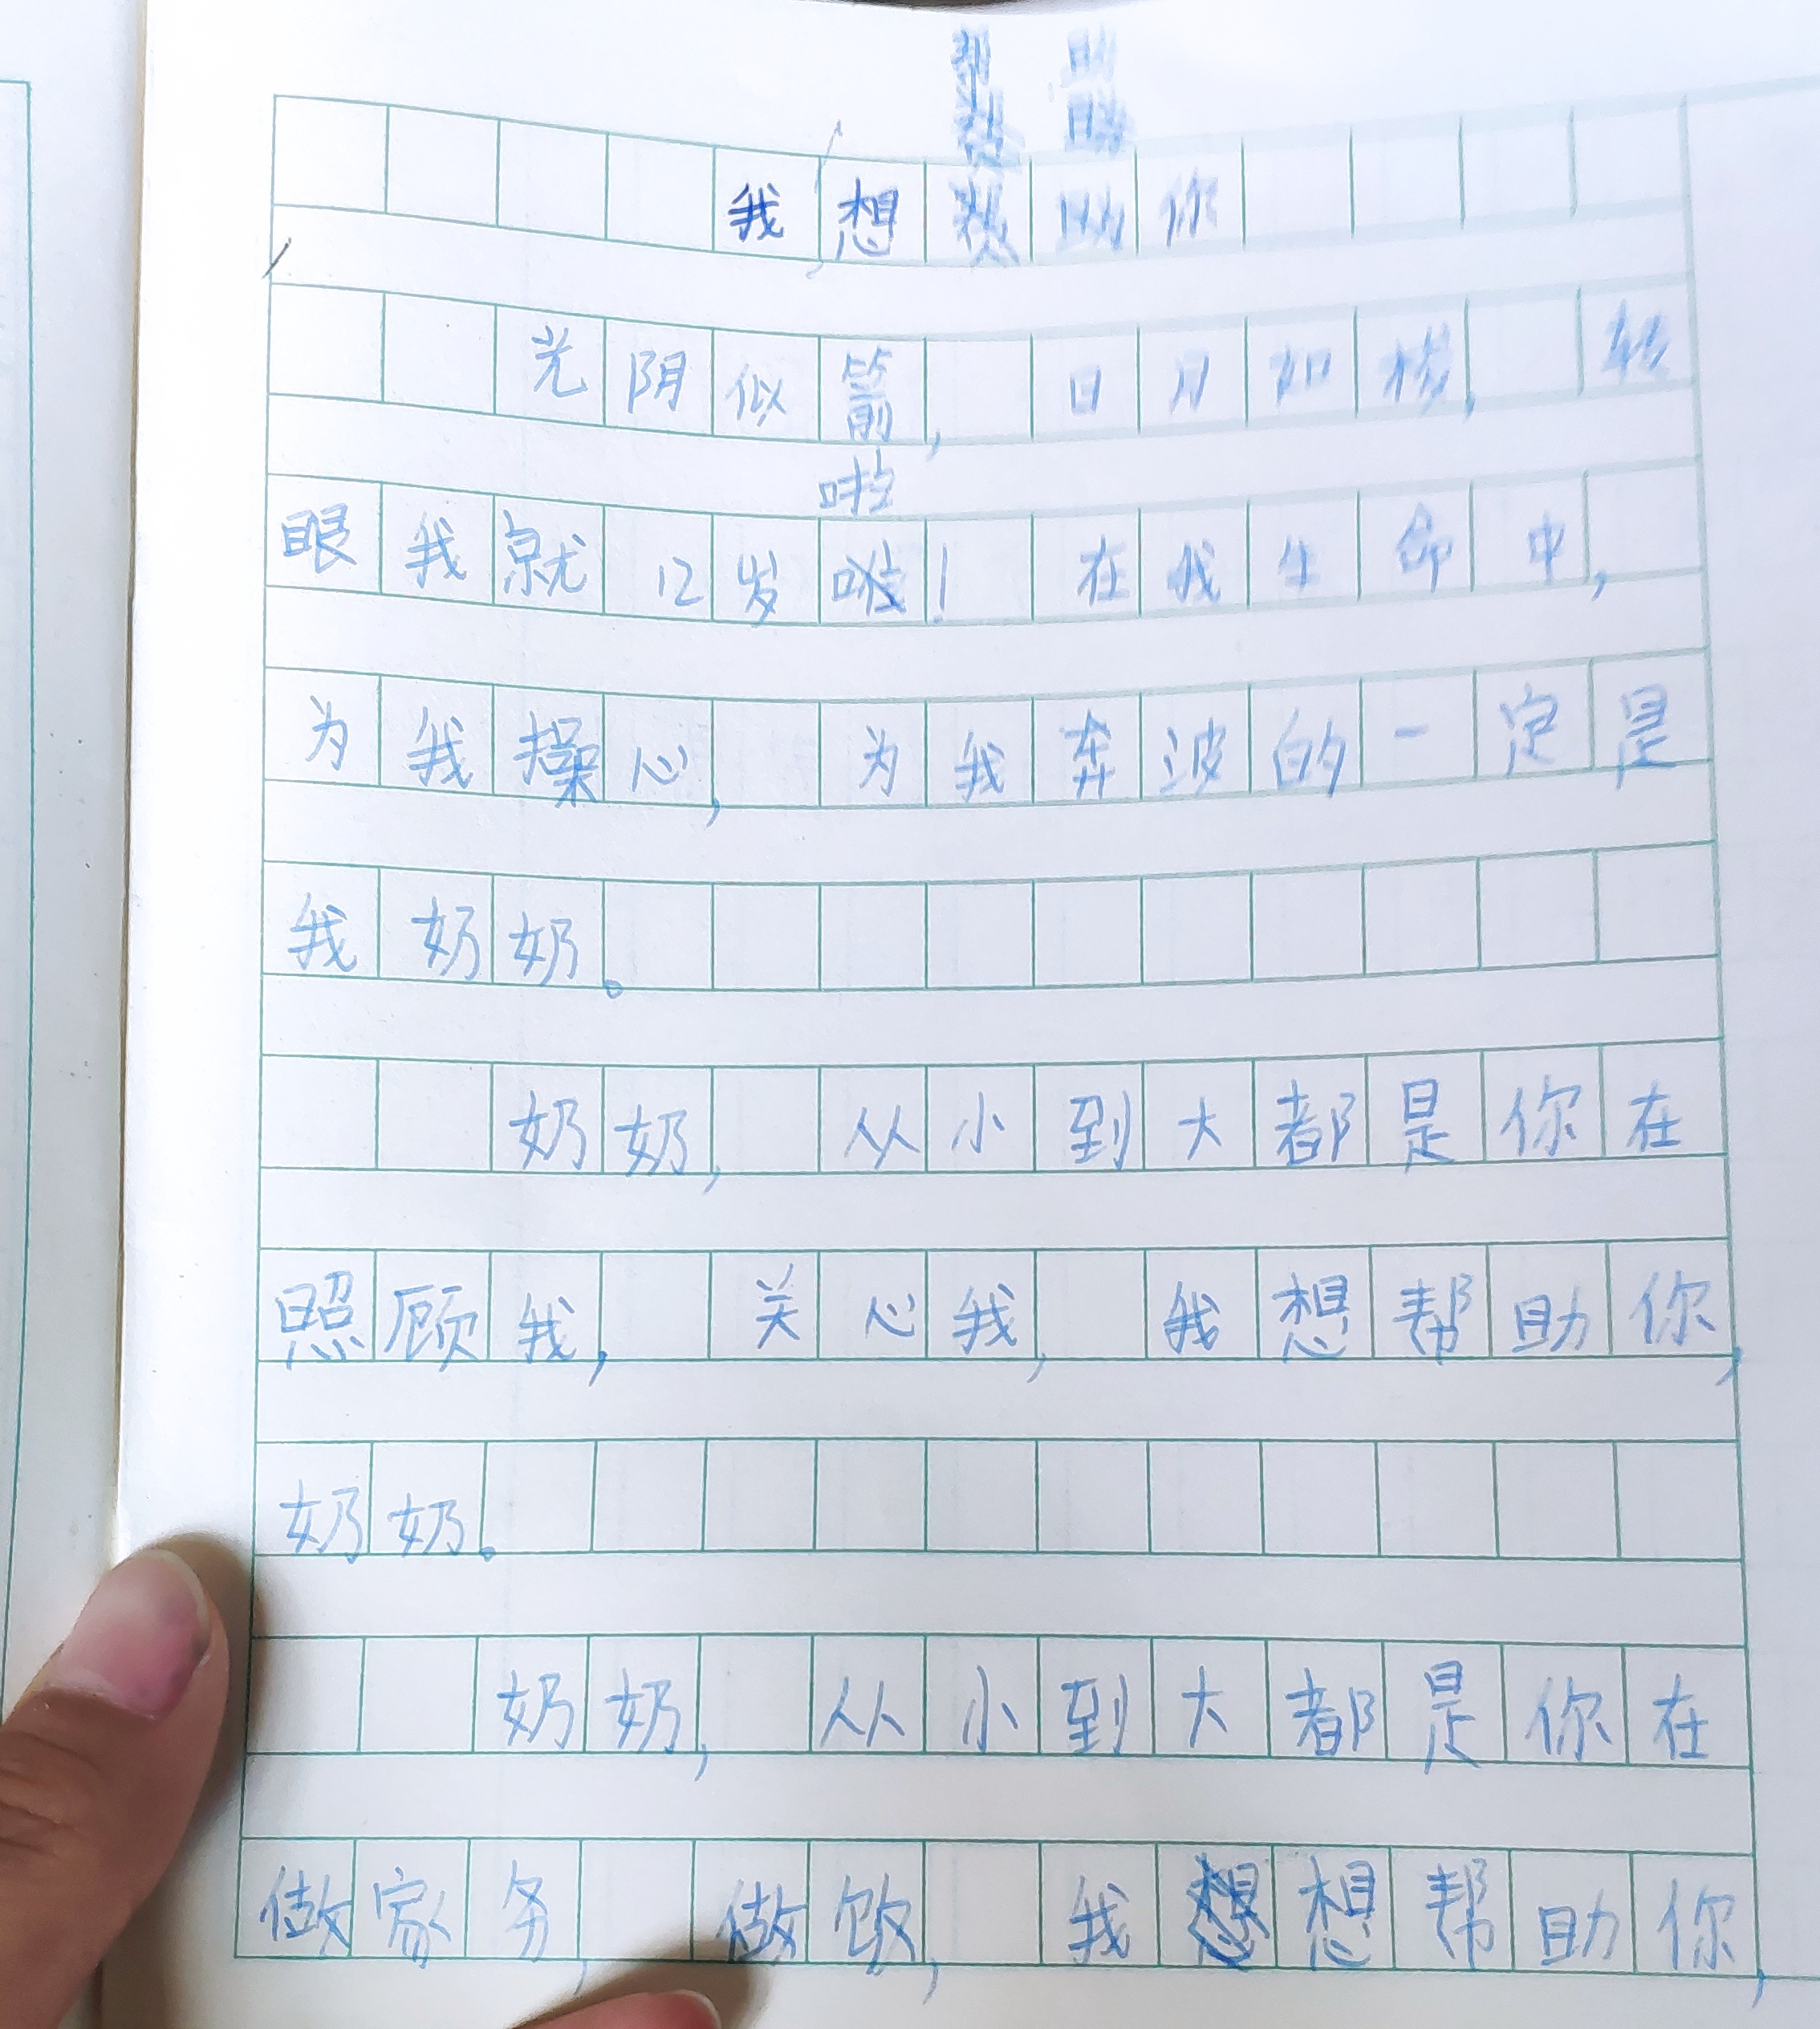 帮助
我想帮助你
光阴似箭，日月如梭，转
啦
眼我就12岁啦！在我生命中，
为我操心，为我奔波的一定是
我奶奶。
奶奶，从小到大都是你在
照顾我，关心我，我想帮助你，
奶奶。
奶奶，从小到大都是你在
做家务，做饭，我想帮助你，